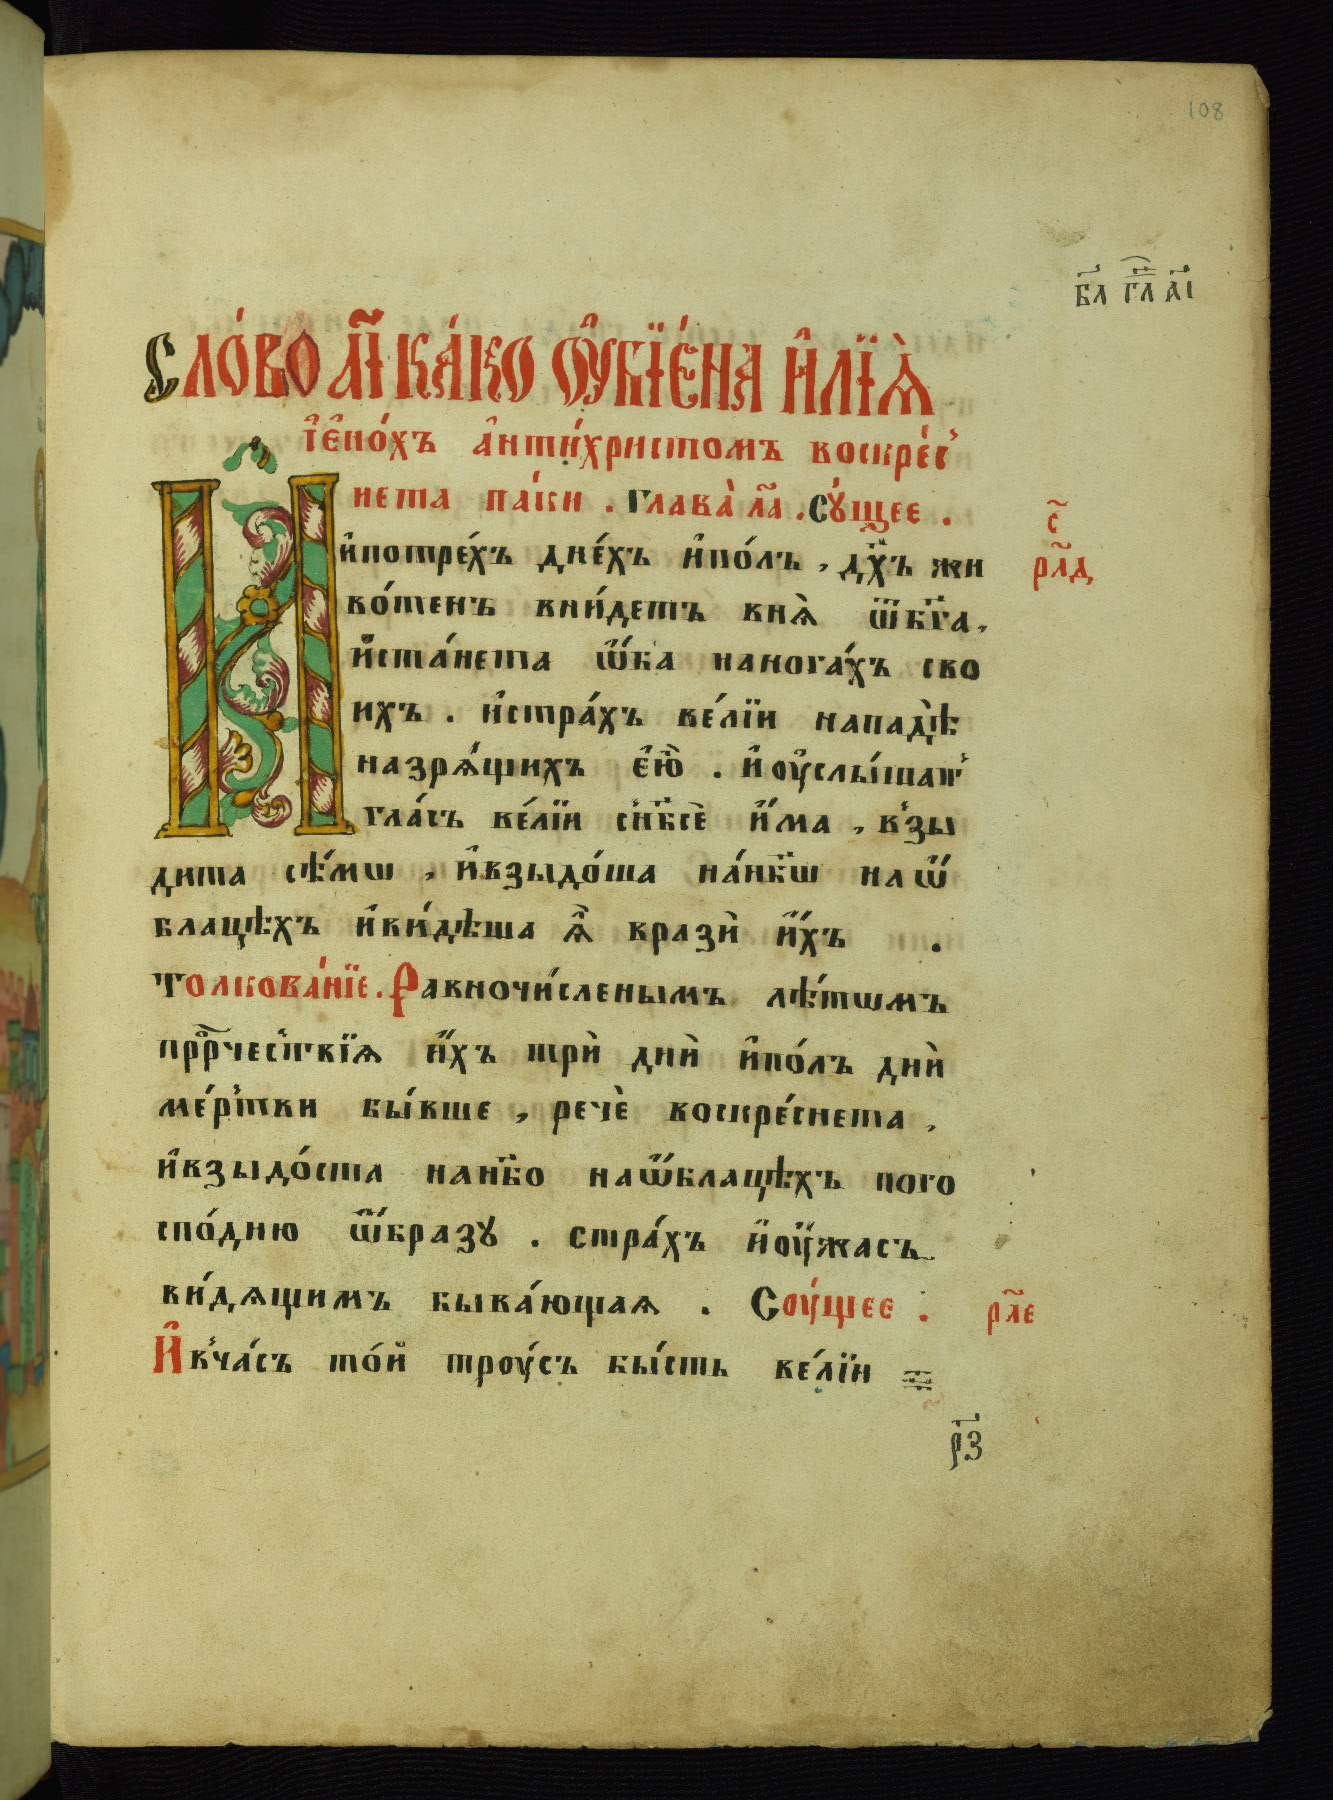 108
бл҃ гл҃ аі҃
Сло́во аі҃ ка́ко ᲂу҆бїе́на и҆лїѧ̀
і҆є҆но́хъ а҆нти́христомъ воскре́с
нета па́ки . глава̀ ла҃ . сꙋ́щее .
И҆потре́хъ дне́хъ и҆по́лъ , дх҃ъ жи
с҃
рл҃д
во́тенъ вни́детъ внѧ̀ ѿбг҃а ,
и҆ста́нета ѻ҆́ба нанога́хъ сво
ихъ . и҆стра́хъ ве́лїи нападѐ
назрѧ́щихъ є҆ю̀ . и҆ ᲂу҆слы́шат
гла́съ ве́лїи сн҃бсѐ и҆́ма , взы
дита сѣ́мѡ , и҆взыдо́ша на́нб҃ѡ наѡ҆́
блацѣхъ и҆ви́дѣша ѧ҆̀ вразѝ и҆́хъ .
Толкова́нїе . Равночи́сленымъ лѣ́тѡмъ
прⷪ҇рческїѧ и҆́хъ трѝ днѝ и҆по́лъ днѝ
ме́ртви бы́вше , речѐ воскре́снета ,
и҆взыдо́ста нанб҃о наѡ҆́блацѣхъ пого
спо́дню ѡ҆́бразꙋ . страхъ и҆ᲂу҆́жасъ
ви́дѧщимъ быва́ющаѧ . Соу́щее .
рл҃е
И҆ вча́съ то́й троу́съ бы́сть ве́лїи
рз҃